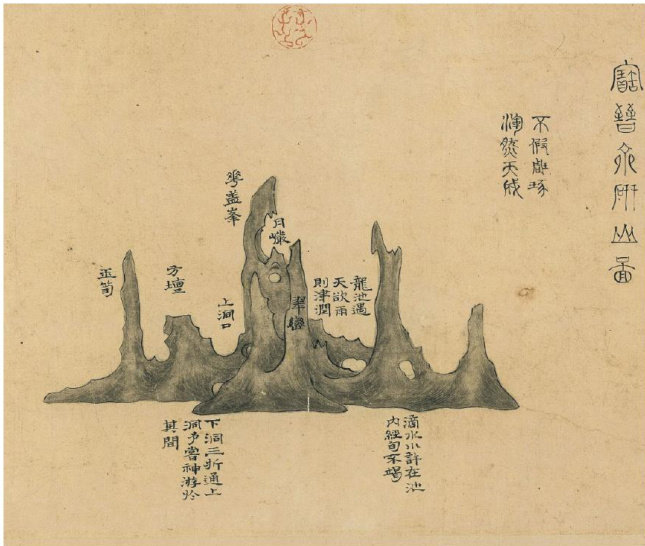 寶晉齋研山圖
不假雕琢
渾然天成
龍池遇
天欲雨
則津潤
月巖
翠巒
華蓋峯
上洞口
方壇
玉筍
滴水小許在池
內經旬不竭
下洞三折通上
洞予嘗神游於
其間